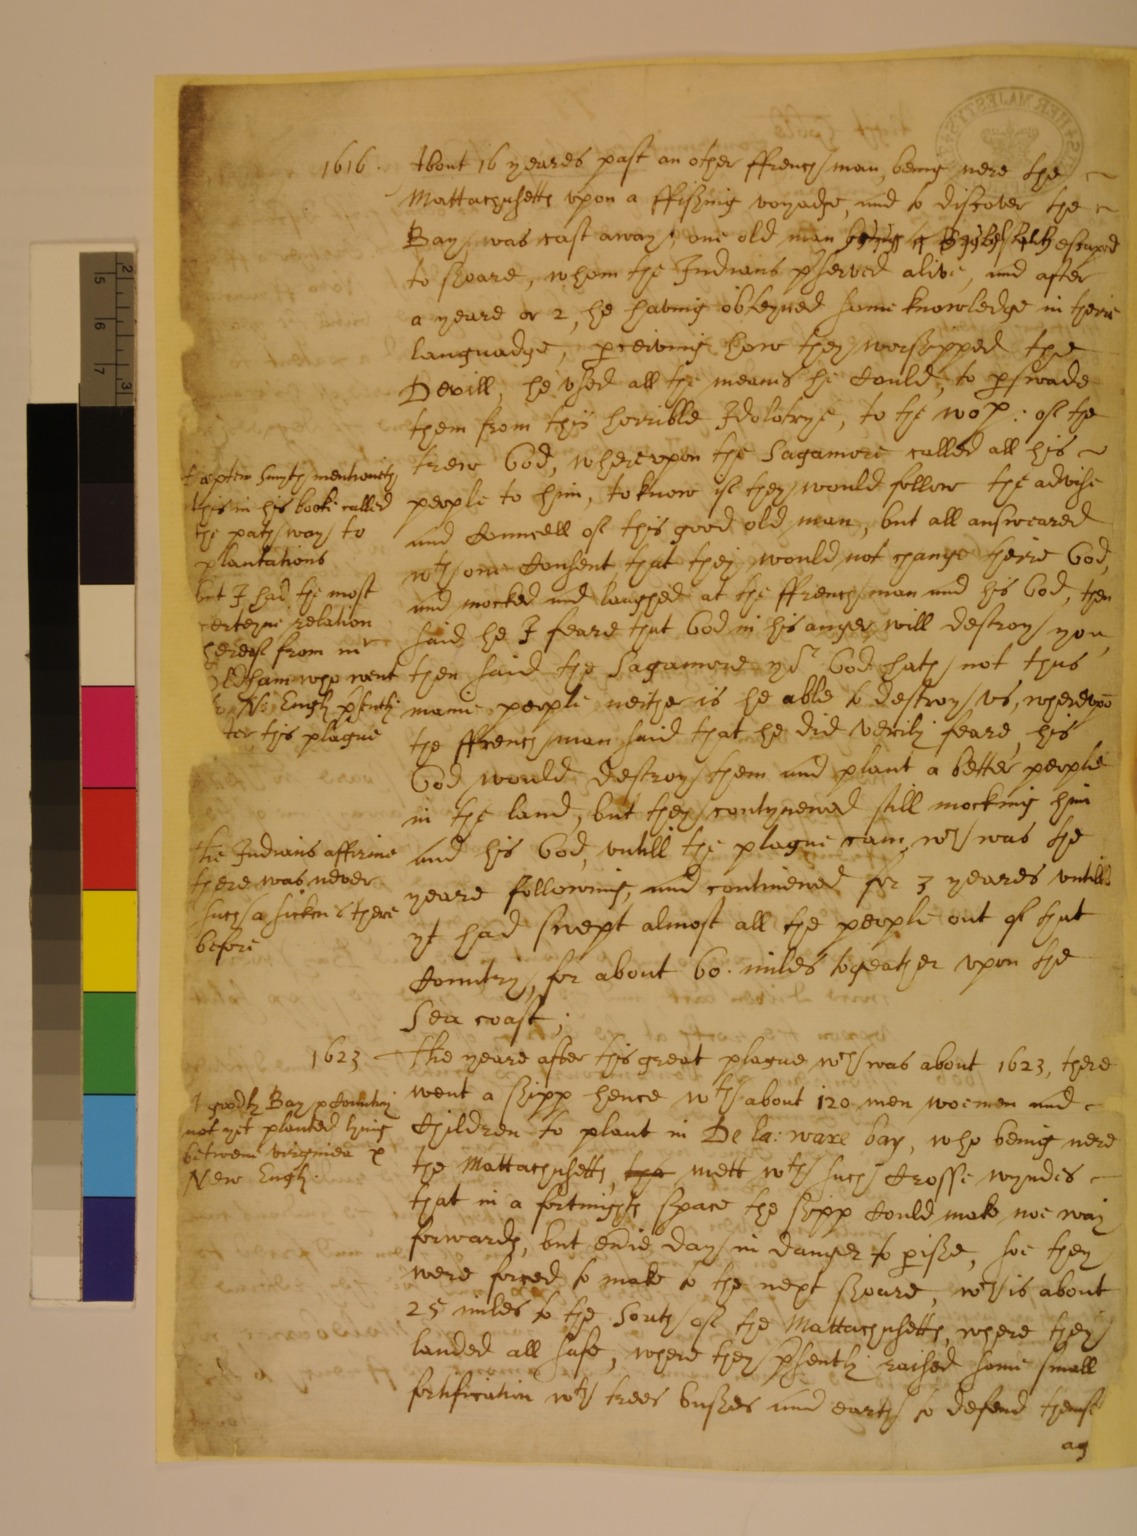 1616. About 16 yeares past an other ffrench man, being nere the
Mattachusetts upon a ffishing voyadge, and to discover the
Bay, was cast away, one old man escaped
to shoare, whom the Indians pserved alive, and after
a yeare or 2, he having obteyned some knowledge in theire
languadge, pceiving how they worshipped the
Devill, he used all the meanes he Could, to pswade
them from this horrible Idolatrye, to the wop: of the
trew God, whereupon the Sagamore called all his
people to him, to know if they would follow the advise
and Councell of this good old man, but all answeared
wth one Consent that they would not change theire God,
and mocked and laughed at the ffrench man and his God, then
said he I feare that God in his anger will destroy you,
then said the Sagamore yor God hath not thus
manie people neither is he able to destroy us, whereupō
the ffrench man said that he did verily feare his
God would destroy them and plant a better people
in the land, but they contynewed still mocking him
and his God, untill the plague cam, wch was the
yeare following, and continewed for 3 yeares untill
yt had swept almost all the people out of that
Country, for about 60. miles togeather upon the
Sea coast;
Capten Smyth mentioneth
this in his booke called
the path way to
plantations
but I had the most
certeyne relation
hereof from mr
Oldham who went
to Ne Engl psently
after this plague
the Indians affirme
there was never
such a sicknes there
before
1623 The yeare after this great plague wch was about 1623, there
went a shipp hence wth about 120 men woemen and
Children to plant in De la: ware bay, who being nere
the Mattachusetts, the mett wth such Crosse wyndes
that in a fortnights space the shipp Could make noe way
forwards, but everie day in danger to pishe, soe they
were forced to make to the next shoare, wch is about
25 miles to the South of the Mattachusetts, where they
landed all safe, where they psently raised some small
fortification wth trees bushes and earth to defend themse
ag
A goodly Bay & Country
not yet planted lying
betweene virginea &
New Engl: